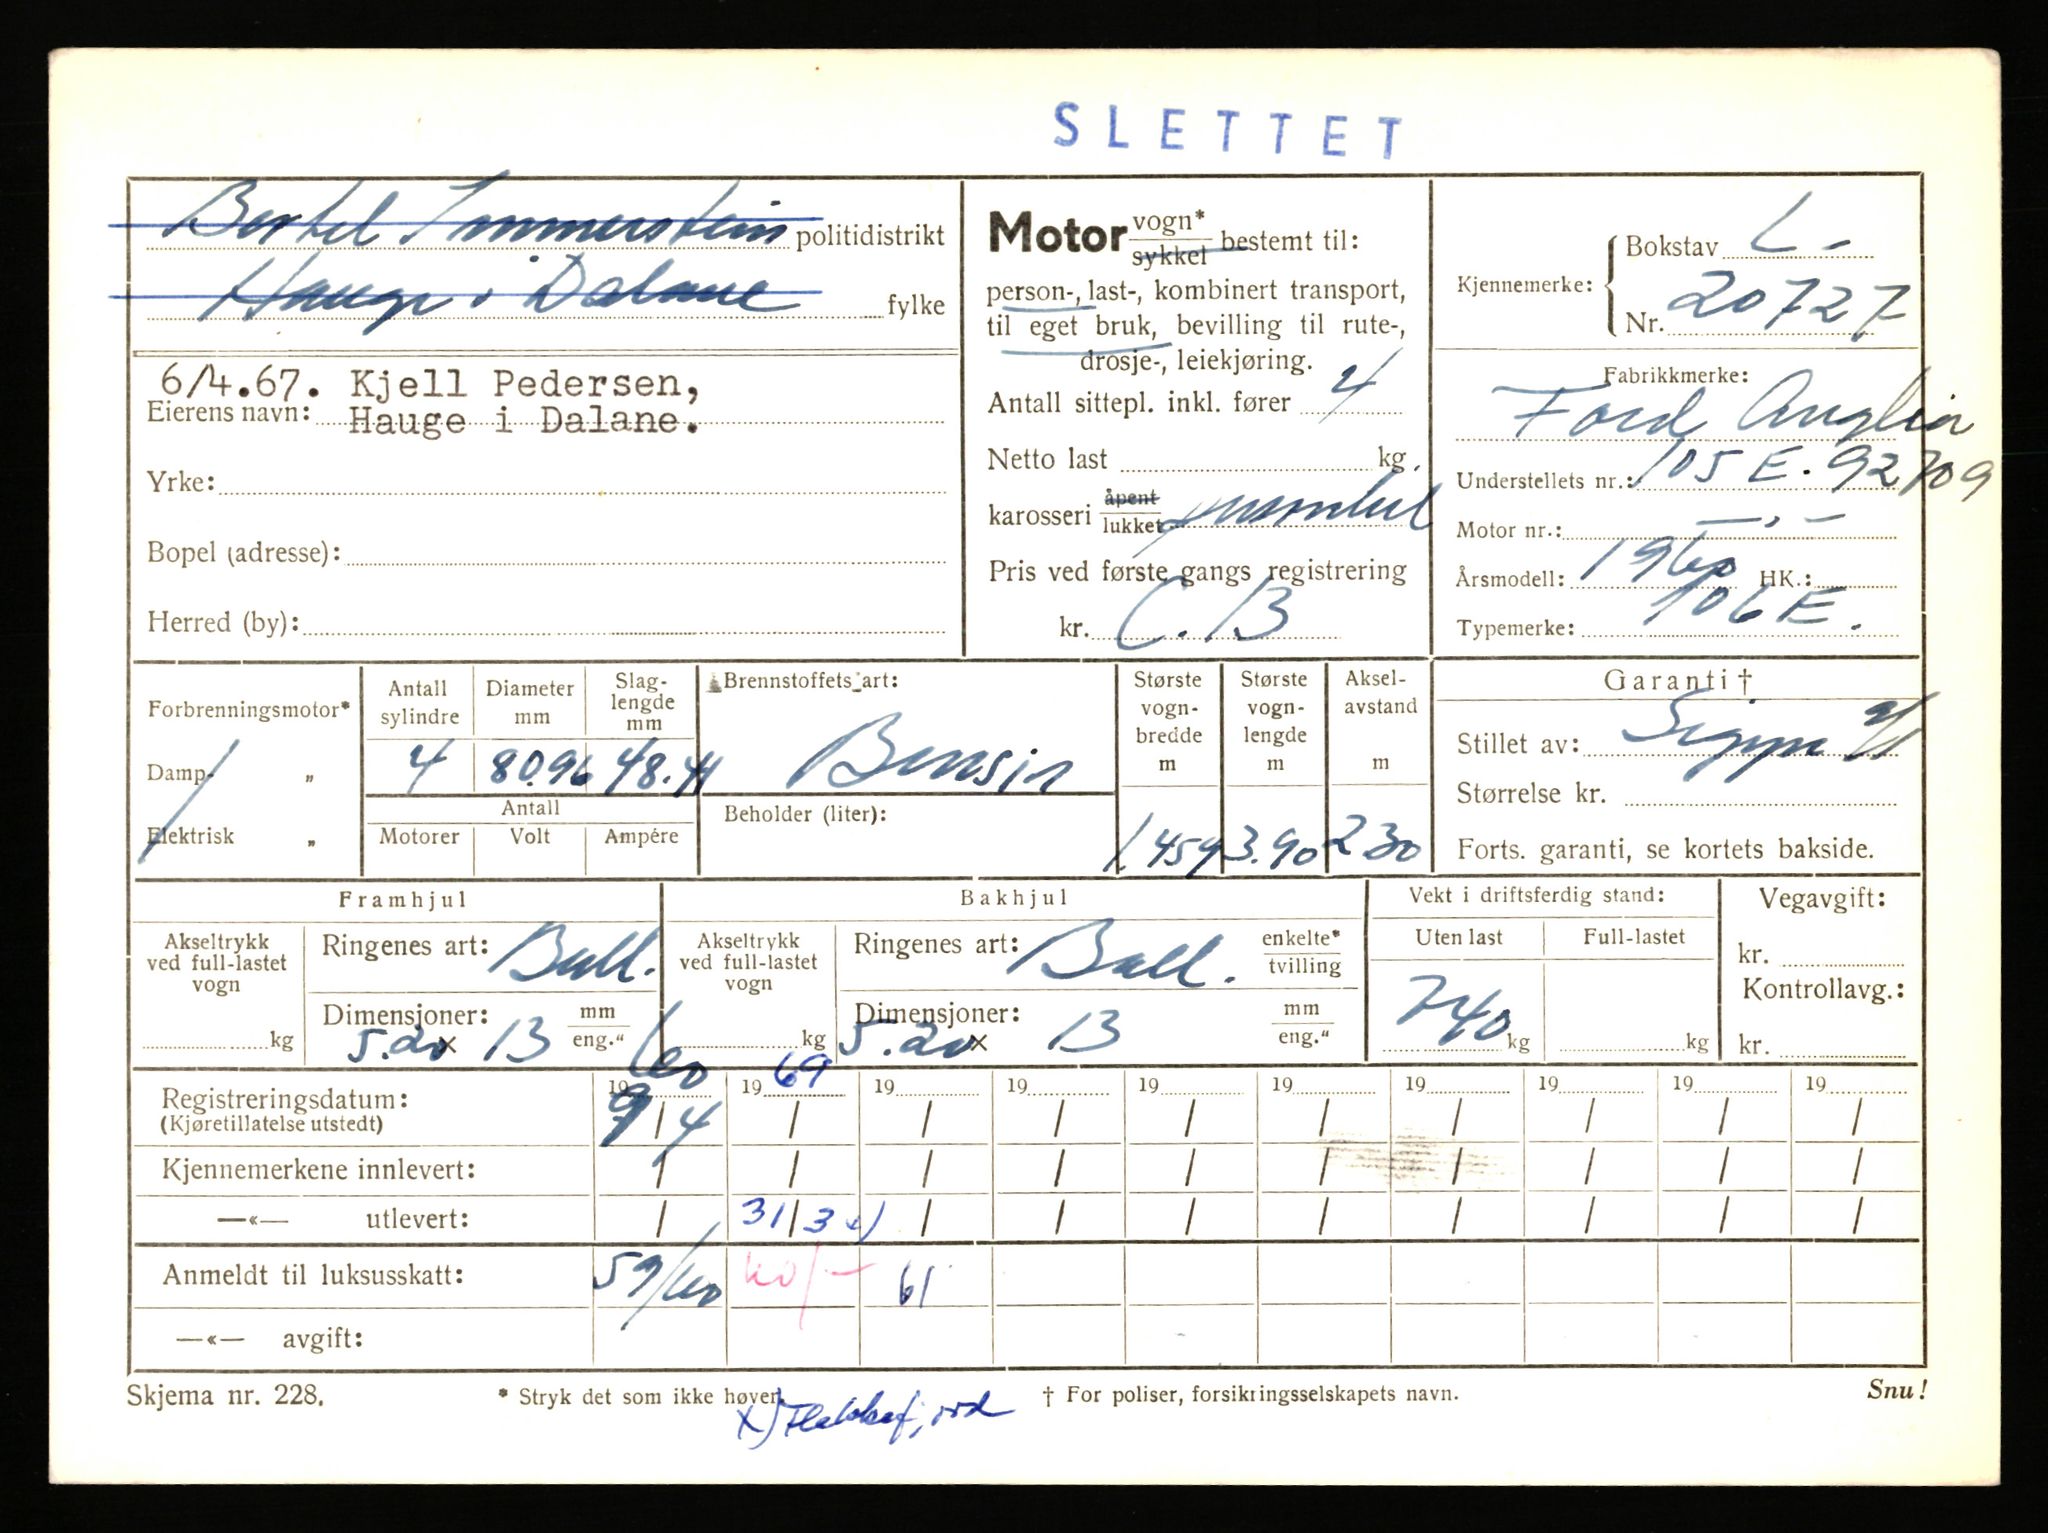 SLETTET
Bertel Immerstein politidistrikt
Hauge i Dalane fylke
6/4.67. Kjell Pedersen,
Eierens navn: Hauge i Dalane.
Yrke:
Bopel (adresse):
Herred (by):
Motor vogn* sykkel bestemt til:
person-, last-, kombinert transport,
til eget bruk, bevilling til rute-,
drosje-, leiekjøring.
Antall sittepl. inkl. fører 4
Netto last kg.
karosseri åpent lukket
Pris ved første gangs registrering
kr. C.B
Kjennemerke: Bokstav L -
Nr. 20727
Fabrikkmerke:
Ford Anglia
Understellets nr.: 105 E. 92709
Motor nr.: — , —
Årsmodell: 1960 HK.:
Typemerke: 106 E.
Forbrenningsmotor*
Damp- „
Elektrisk „
Antall sylindre 4
Diameter mm 80.96
Slag-lengde mm 48.41
Antall
Motorer Volt Ampére
Brennstoffets art:
Bensin
Beholder (liter):
Største vogn-bredde m 1.454
Største vogn-lengde m 3.90
Aksel-avstand m 230
Garanti †
Stillet av:
Størrelse kr.
Forts. garanti, se kortets bakside.
Framhjul
Akseltrykk ved full-lastet vogn kg
Ringenes art: Ball.
Dimensjoner: mm eng."
5.20 x 13
Bakhjul
Akseltrykk ved full-lastet vogn kg
Ringenes art: Ball. enkelte* tvilling
Dimensjoner: mm eng."
5.20 x 13
Vekt i driftsferdig stand:
Uten last Full-lastet
740 kg kg
Vegavgift:
kr.
Kontrollavg.:
kr.
19 60 19 69 19 19 19 19 19 19 19 19
Registreringsdatum: 9/4 / / / / / / / / /
(Kjøretillatelse utstedt)
Kjennemerkene innlevert: / / / / / / / / / /
—«— utlevert: / 31/3 x) / / / / / / / /
Anmeldt til luksusskatt: 59/60 60/- 61
—«— avgift:
Skjema nr. 228. * Stryk det som ikke høver. † For poliser, forsikringsselskapets navn. Snu!
x) Flekkefjord